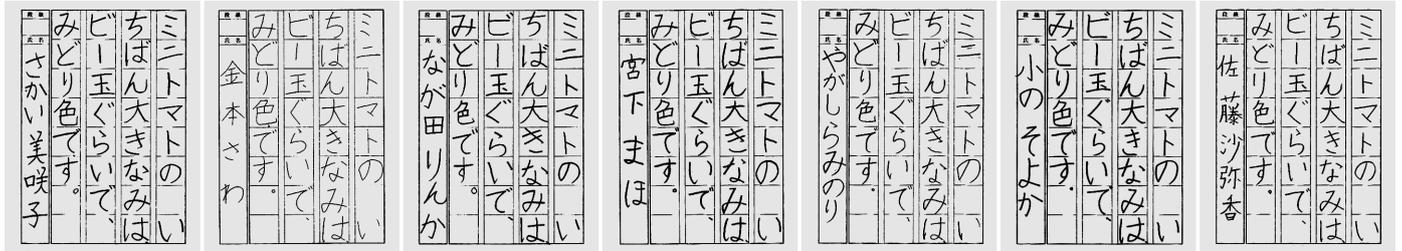 ミニトマトの い
ちばん大きなみは
ビー玉ぐらいで、
みどり色です。
段級
氏名
さかい美咲子
ミニトマトの い
ちばん大きなみは
ビー玉ぐらいで、
みどり色です。
段級
氏名
金本さわ
ミニトマトの い
ちばん大きなみは
ビー玉ぐらいで、
みどり色です。
段級
氏名
なが田りんか
ミニトマトの い
ちばん大きなみは
ビー玉ぐらいで、
みどり色です。
段級
氏名
宮下まほ
ミニトマトの い
ちばん大きなみは
ビー玉ぐらいで、
みどり色です。
段級
氏名
やがしらみのり
ミニトマトの い
ちばん大きなみは
ビー玉ぐらいで、
みどり色です。
段級
氏名
小のそよか
ミニトマトの い
ちばん大きなみは
ビー玉ぐらいで、
みどり色です。
段級
氏名
佐藤沙弥香